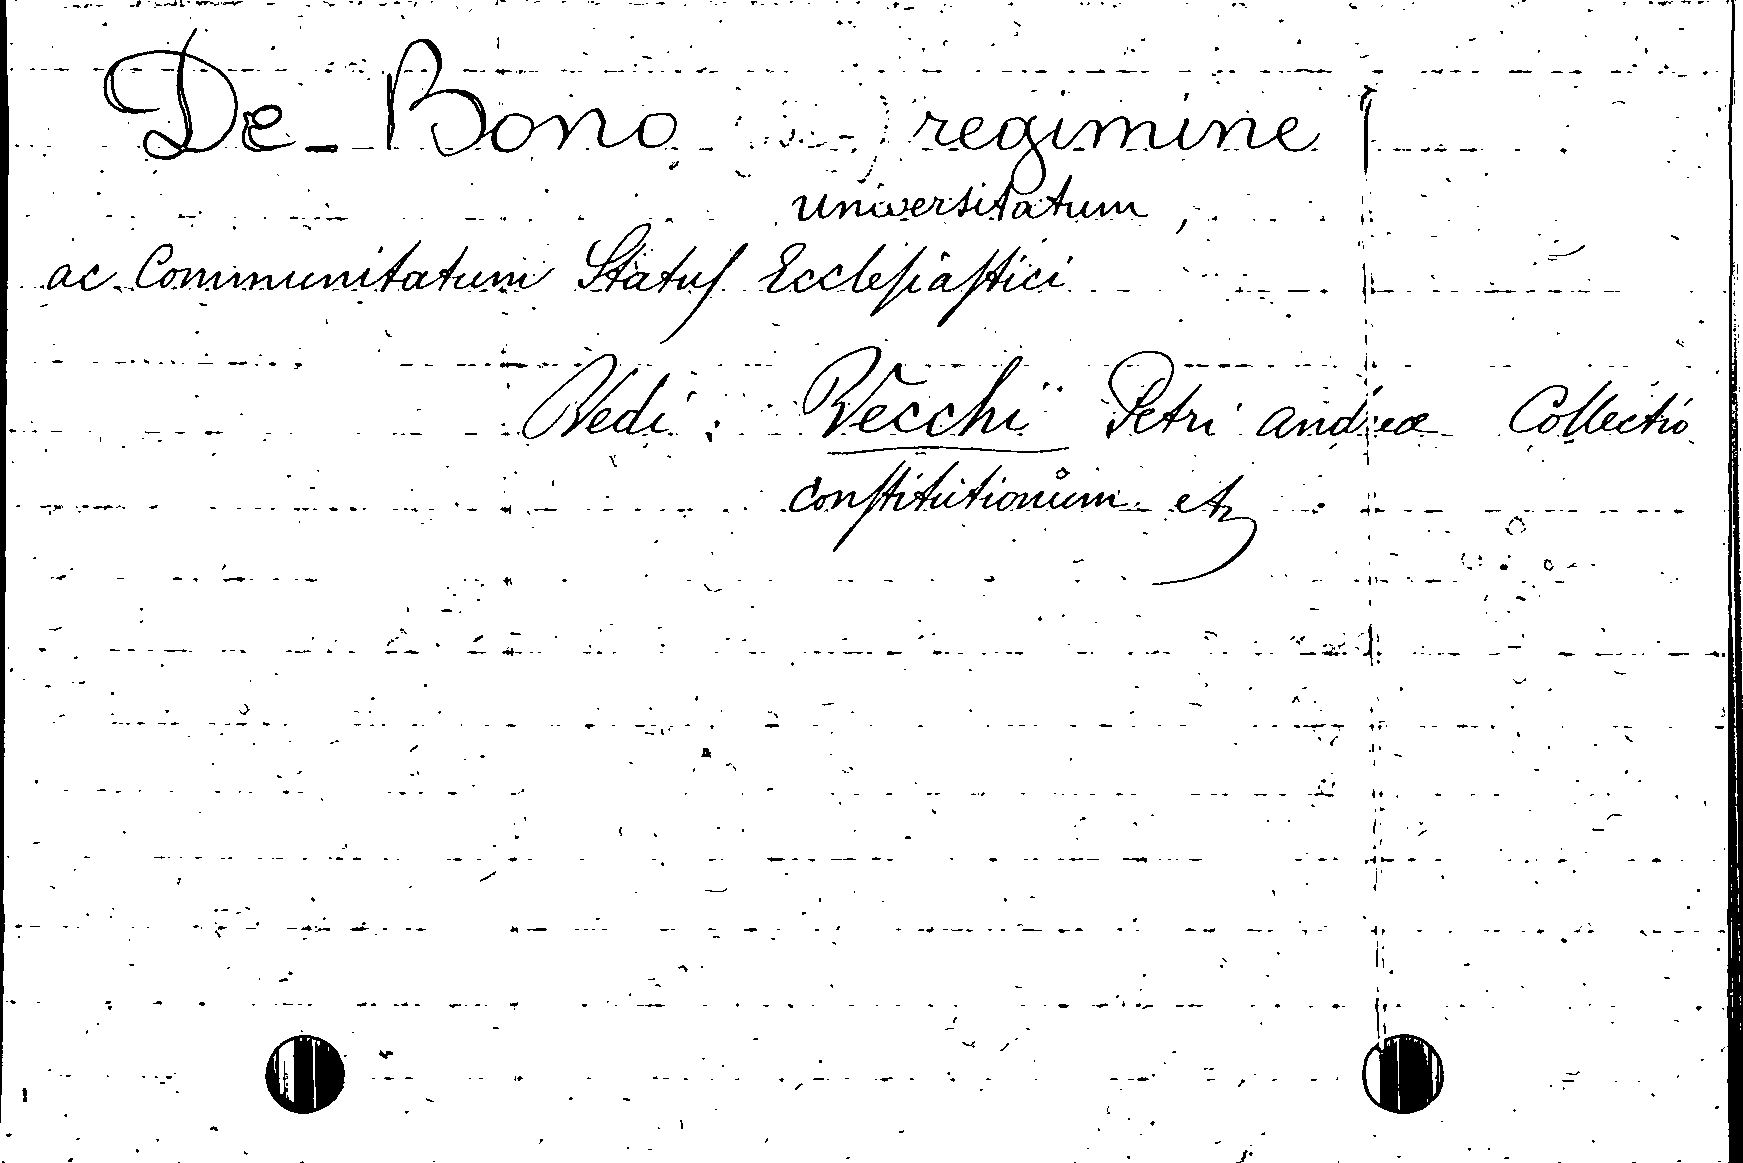 De Bono regimine
universitatum,
ac Communitatum Statuſ Eccleſiaſtici
Vedi: Vecchi Petri Andreæ Collectio
conſtitutionum etc